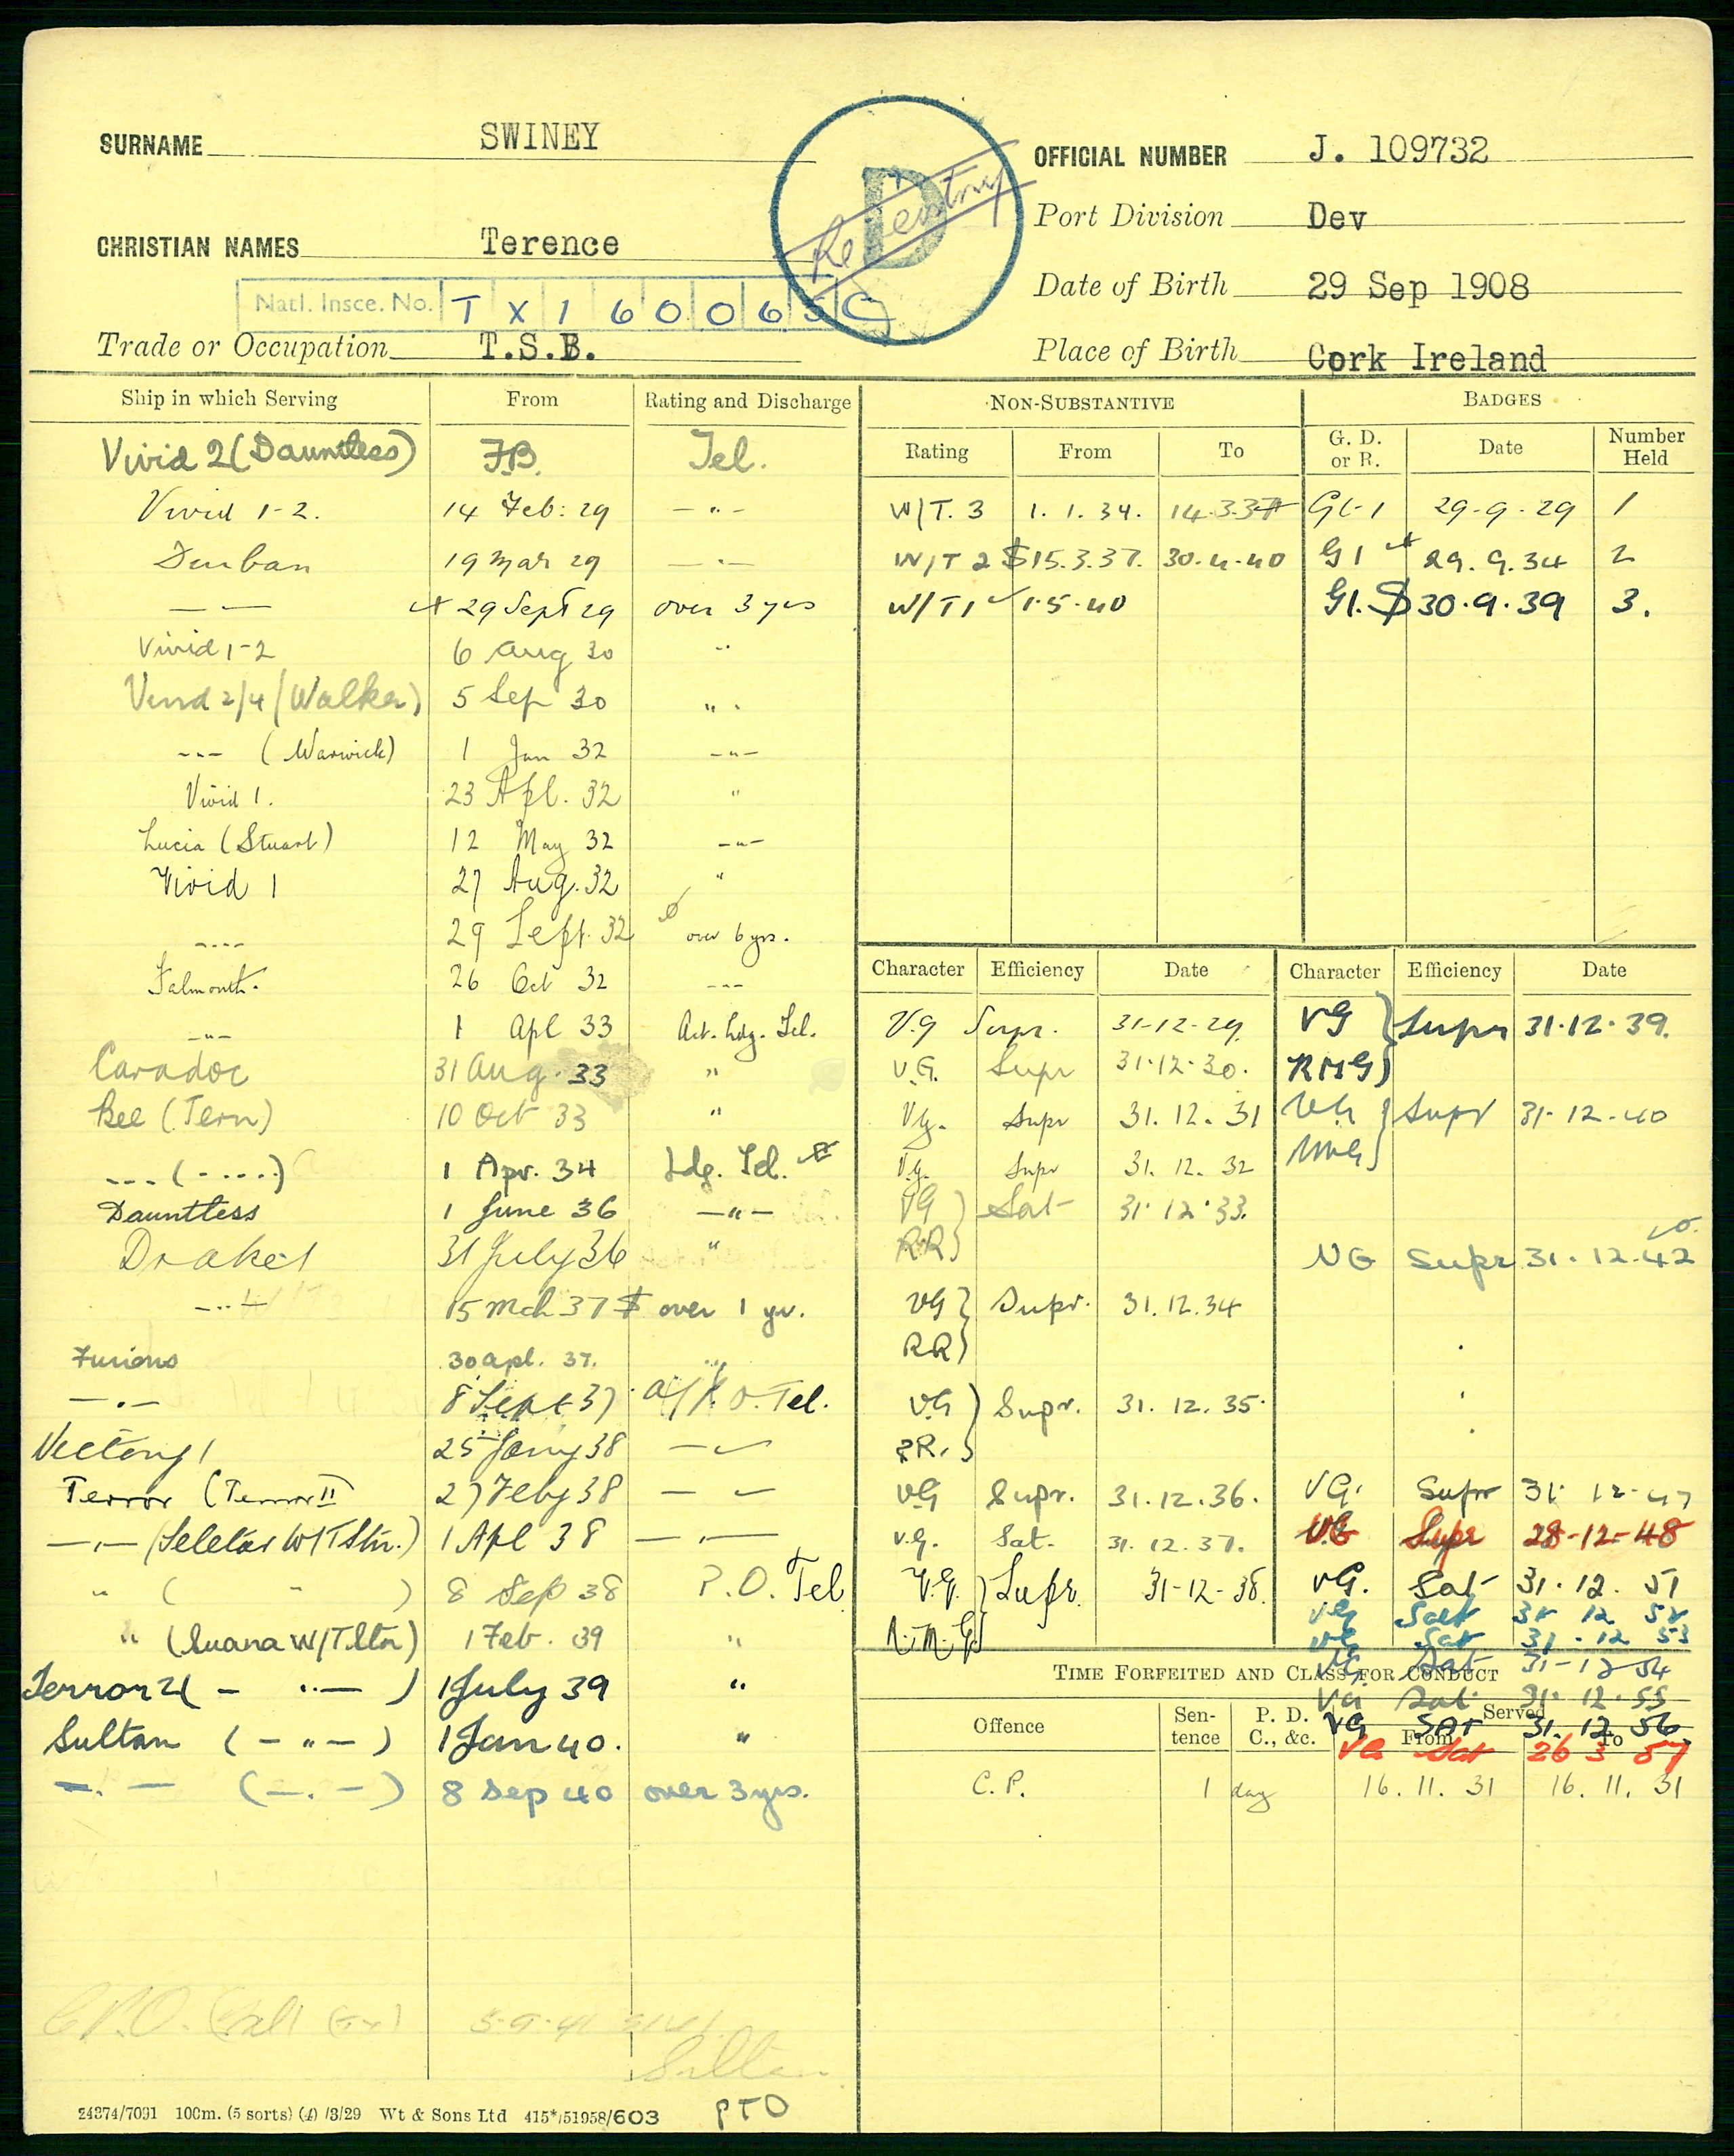 SURNAME SWINEY
OFFICIAL NUMBER J. 109732
D
Re entry
Port Division Dev
CHRISTIAN NAMES Terence
Date of Birth 29 Sep 1908
Natl. Insce. No. T X 1 6 0 0 6 5 C
Trade or Occupation T.S.B.
Place of Birth Cork Ireland
Ship in which Serving From Rating and Discharge
Vivid 2 (Dauntless) F.B. Tel.
Vivid 1-2. 14 Feb: 29 -"-
Durban 19 Mar 29 -"-
— — 29 Sept 29 over 3 yrs
Vivid 1-2 6 Aug 30 "
Vivid 2/4 (Walker) 5 Sep 30 "
--- (Warwick) 1 Jan 32 -"-
Vivid 1. 23 Apl. 32 "
Lucia (Stuart) 12 May 32 -"-
Vivid 1 27 Aug. 32 "
---- 29 Sept. 32 over 6 yrs.
Falmouth. 26 Oct 32 ---
-"- 1 Apl 33 Act. Ldg. Tel.
Caradoc 31 Aug. 33 "
Bee (Tern) 10 Oct 33 "
--- (----) 1 Apr. 34 Ldg. Tel.
Dauntless 1 June 36 -"-
Drake 1 31 July 36 "
-"- 15 Mch 37 $ over 1 yr.
Furious 30 apl. 37. "
-"- 8 Sept 37 a/P.O. Tel.
Victory 1 25 Jany 38 -"-
Terror (Terror II) 27 Feby 38 -"-
-"- (Seletar W/T Stn.) 1 Apl 38 -"-
" ( " ) 8 Sep 38 P.O. Tel
" (Suara W/T Stn) 1 Feb. 39 "
Terror 2 ( - " - ) 1 July 39 "
Sultan ( - " - ) 1 Jan 40. "
-"- (-"-) 8 Sep 40 over 3 yrs.
C.P.O.
Sultan
PTO
24374/7091 100m. (5 sorts) (4) /3/29 Wt & Sons Ltd 415*/51958/603
NON-SUBSTANTIVE
Rating From To
W/T. 3 1. 1. 34. 14.3.37
W/T 2 $ 15.3.37. 30.4.40
W/T1 1.5.40
BADGES
G. D. or R. Date Number Held
Gt-1 29-9-29 1
G1 29.9.34 2
G1. $ 30.9.39 3.
Character Efficiency Date
V.G Supr. 31-12-29
V.G. Supr 31.12.30.
Vg. Supr 31.12.31
Vg. Supr 31.12.32
VG } Sat 31.12.33.
RR }
VG } Supr. 31.12.34
RR }
VG } Supr. 31.12.35.
RR. }
VG Supr. 31.12.36.
V.G. Sat. 31.12.37.
V.G. } Supr. 31-12-38.
R.M.G. }
Character Efficiency Date
VG } Supr 31.12.39.
RMG }
VG } Supr 31-12-40
RMG }
VG Supr 31.12.42
VG. Supr 31-12-47
VG Supr 28-12-48
VG. Sat 31.12.51
VG Sat 31 12 52
VG Sat 31.12 53
VG Sat 31-12 54
VG Sat 31.12.55
VG SAT 31.12 56
VG Sat 26 3 57
TIME FORFEITED AND CLASS FOR CONDUCT
Offence Sentence P. D. C., &c. Served From To
C.P. 1 day 16. 11. 31 16. 11. 31